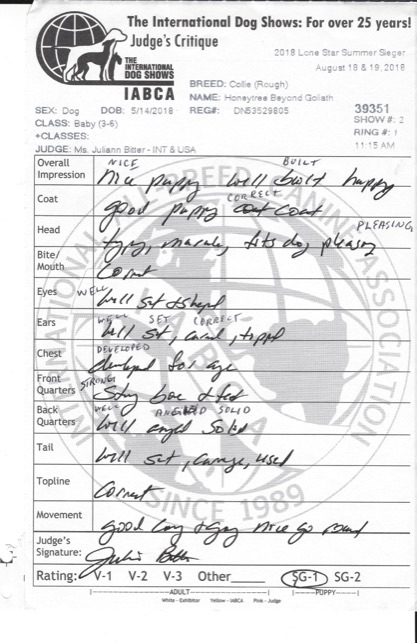 The International Dog Shows: For over 25 years!
Judge's Critique
THE INTERNATIONAL DOG SHOWS
IABCA
2018 Lone Star Summer Sieger
August 18 & 19, 2018
BREED: Collie (Rough)
NAME: Honeytree Beyond Goliath
SEX: Dog DOB: 5/14/2018 REG#: DN53529805 39351
CLASS: Baby (3-6) SHOW #: 2
+CLASSES: RING #: 1
JUDGE: Ms. Juliann Bitter - INT & USA 11:15 AM
NICE BUILT
Overall Impression Nice puppy well built happy
CORRECT
Coat good puppy coat
PLEASING
Head fits dog pleasing
Bite/Mouth Correct
WELL
Eyes Well set & shaped
WELL SET CORRECT
Ears Well set, tipped
DEVELOPED
Chest developed for age
STRONG
Front Quarters Strong bone & feet
WELL ANGLED SOLID
Back Quarters Well angled Solid
Tail Well set, carriage, used
Topline Correct
Movement good nice go round
Judge's Signature:
Rating: V-1 V-2 V-3 Other SG-1 SG-2
ADULT PUPPY
White - Exhibitor Yellow - IABCA Pink - Judge
INTERNATIONAL ALL BREED CANINE ASSOCIATION
IABCA
SINCE 1989